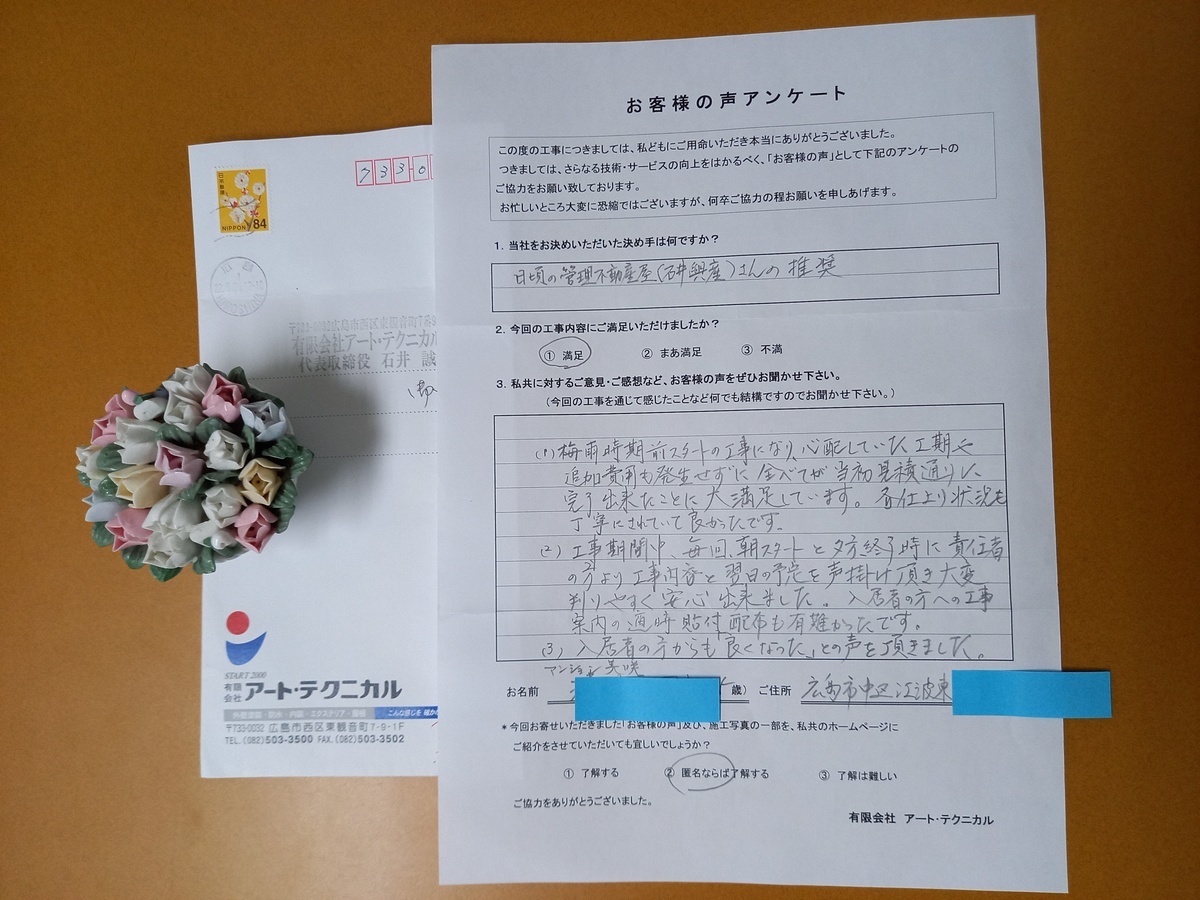 お客様の声アンケート
この度の工事につきましては、私どもにご用命いただき本当にありがとうございました。
つきましては、さらなる技術・サービスの向上をはかるべく、「お客様の声」として下記のアンケートの
ご協力をお願い致しております。
お忙しいところ大変に恐縮ではございますが、何卒ご協力の程お願いを申しあげます。
1. 当社をお決めいただいた決め手は何ですか？
日頃の管理不動産屋(石井興産)さんの推奨
2. 今回の工事内容にご満足いただけましたか？
① 満足 ② まあ満足 ③ 不満
3. 私共に対するご意見・ご感想など、お客様の声をぜひお聞かせ下さい。
（今回の工事を通じて感じたことなど何でも結構ですのでお聞かせ下さい。）
(1) 梅雨時期前スタートの工事になり、心配していた工期や
追加費用も発生せずに全べてが当初見積通りに
完了出来たことに大満足しています。各仕上り状況も
丁寧にされていて良かったです。
(2) 工事期間中、毎回、朝スタートと夕方終了時に責任者
の方より工事内容と翌日の予定を声掛け頂き大変
判りやすく安心出来ました。入居者の方への工事
案内の適時貼付、配布も有難かったです。
(3) 入居者の方からも「良くなった」との声を頂きました。
マンション美咲
お名前 歳） ご住所 広島市中区江波東
*今回お寄せいただきました「お客様の声」及び、施工写真の一部を、私共のホームページに
ご紹介をさせていただいても宜しいでしょうか？
① 了解する ② 匿名ならば了解する ③ 了解は難しい
ご協力をありがとうございました。
有限会社 アート・テクニカル
日本郵便
NIPPON 84
733-0
〒733-0032広島市西区東観音町7番
有限会社アート・テクニカル
代表取締役 石井 誠
御
START 2000
有限会社 アート・テクニカル
外壁塗装・防水・内装・エクステリア・屋根
〒733-0032 広島市西区東観音町7-9-1F
TEL.(082)503-3500 FAX.(082)503-3502